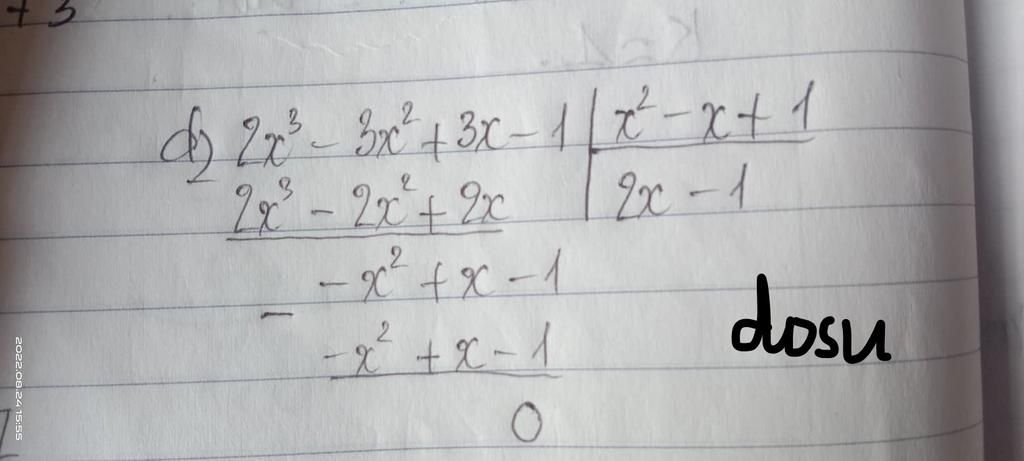 + 3
d) 2x³ - 3x² + 3x - 1 | x² - x + 1
2x³ - 2x² + 2x | 2x - 1
- x² + x - 1
-
- x² + x - 1
0
dosu
2022.08.24 15:55